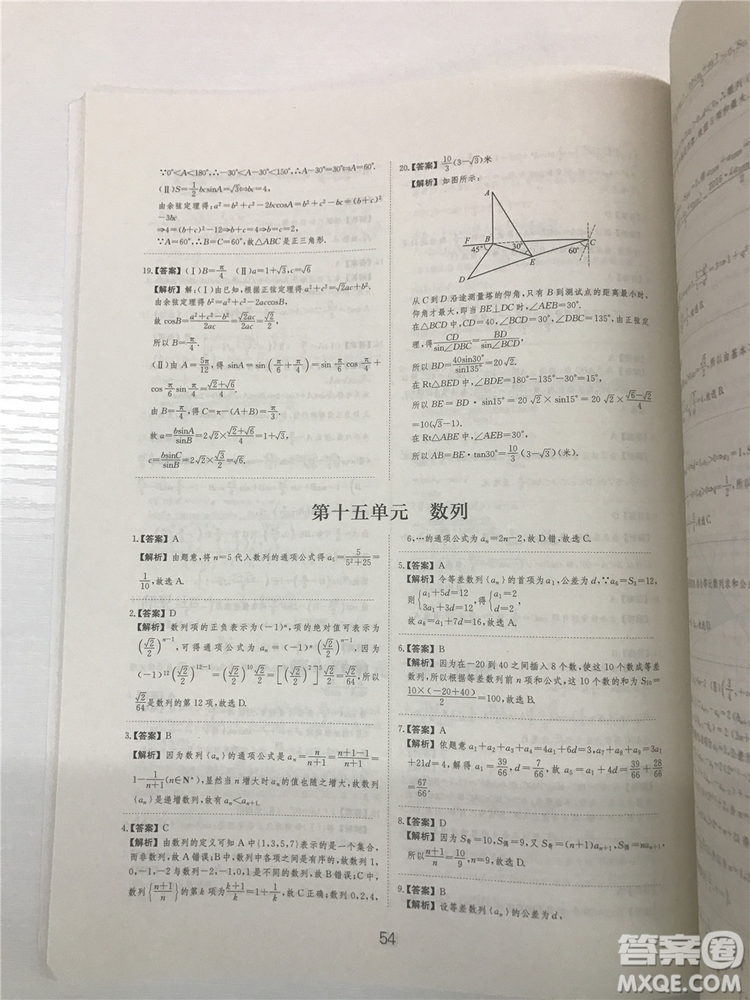 ∵0°<A<180°,∴-30°<A-30°<150°,∴A-30°=30°,∴A=60°.
(Ⅱ)S=\frac{1}{2}bcsinA=√3⇔bc=4,
由余弦定理得:a²=b²+c²-2bccosA=b²+c²-bc⇔(b+c)²
-3bc
⇒4=(b+c)²-12⇒b+c=4⇒b=c=2,
∵A=60°,∴B=C=60°,故△ABC是正三角形.
19.【答案】(Ⅰ)B=\frac{π}{4} (Ⅱ)a=1+√3,c=√6
【解析】解:(Ⅰ)由已知,根据正弦定理得a²+c²-√2ac=b²,
由余弦定理得b²=a²+c²-2accosB,
故cosB=\frac{a²+c²-b²}{2ac}=\frac{√2ac}{2ac}=\frac{√2}{2},
所以B=\frac{π}{4}.
(Ⅱ)由A=\frac{5π}{12},得sinA=sin(\frac{π}{6}+\frac{π}{4})=sin\frac{π}{6}cos\frac{π}{4}+
cos\frac{π}{6}sin\frac{π}{4}=\frac{√2+√6}{4},
由B=\frac{π}{4},得C=π-(A+B)=\frac{π}{3},
故a=\frac{bsinA}{sinB}=2√2×\frac{√2+√6}{4}=1+√3,
c=\frac{bsinC}{sinB}=2√2×\frac{√3}{2}=√6.
20.【答案】\frac{10}{3}(3-√3)米
【解析】如图所示:
A
F 45° B 30° E 60° C
D
从C到D沿途测量塔的仰角,只有B到测试点的距离最小时,
仰角才最大,即当BE⊥DC时,∠AEB=30°.
在△BCD中,CD=40,∠BCD=30°,∠DBC=135°,由正弦定
理,得\frac{CD}{sin∠DBC}=\frac{BD}{sin∠BCD},
所以BD=\frac{40sin30°}{sin135°}=20√2.
在Rt△BED中,∠BDE=180°-135°-30°=15°,
所以BE=BD·sin15°=20√2×sin15°=20√2×\frac{√6-√2}{4}
=10(√3-1).
在Rt△ABE中,∠AEB=30°,
所以AB=BE·tan30°=\frac{10}{3}(3-√3)(米).
第十五单元 数列
1.【答案】A
【解析】由题意,将n=5代入数列的通项公式得a₅=\frac{5}{5²+25}=
\frac{1}{10},故选A.
2.【答案】D
【解析】数列项的正负表示为(-1)ⁿ,项的绝对值可表示为
(\frac{√2}{2})ⁿ⁻¹,可得通项公式aₙ=(-1)ⁿ(\frac{√2}{2})ⁿ⁻¹,因为
(-1)¹²(\frac{√2}{2})¹²⁻¹=(\frac{√2}{2})¹¹=[(\frac{√2}{2})²]⁵\frac{√2}{2}=\frac{√2}{64},所以
\frac{√2}{64}是数列的第12项,故选D.
3.【答案】B
【解析】因为数列{aₙ}的通项公式是aₙ=\frac{n}{n+1}=\frac{n+1-1}{n+1}=1-
\frac{1}{n+1}(n∈N*),显然当n增大时aₙ的值随之增大,故数列
是递增数列,故有aₙ<aₙ₊₁.
4.【答案】C
【解析】由数列的定义可知A中{1,3,5,7}表示的是一个集合,
而非数列,故A错误;B中,数列中各项之间是有序的,故数列1,
0,-1,-2与数列-2,-1,0,1是不同的数列,故B错误;C中,
数列{\frac{n+1}{n}}的第k项为\frac{k+1}{k}=1+\frac{1}{k},故C正确;数列0,2,4,
6,…的通项公式为aₙ=2n-2,故D错,故选C.
5.【答案】A
【解析】令等差数列{aₙ}的首项为a₁,公差为d,∵a₆=S₃=12,
则{a₁+5d=12
3a₁+3d=12,得{a₁=2
d=2,
故a₈=a₁+7d=16,故选A.
6.【答案】B
【解析】因为在-20到40之间插入8个数,使这10个数成等差
数列,所以根据等差数列前n项和公式,这10个数的和为S₁₀=
\frac{10×(-20+40)}{2}=100,故选B.
7.【答案】A
【解析】依题意a₁+a₂+a₃+a₄=4a₁+6d=3,a₇+a₈+a₉=3a₁
+21d=4,解得a₁=\frac{39}{66},d=\frac{7}{66},故a₅=a₁+4d=\frac{39}{66}+\frac{28}{66}=
\frac{67}{66},故选A.
8.【答案】D
【解析】因为S奇=10,S偶=9,又S奇=(n+1)aₙ₊₁,S偶=naₙ₊₁,
所以\frac{n+1}{n}=\frac{10}{9},n=9,故选D.
9.【答案】B
【解析】设等差数列{aₙ}的公差为d,
54
答案圈
MXQE.COM